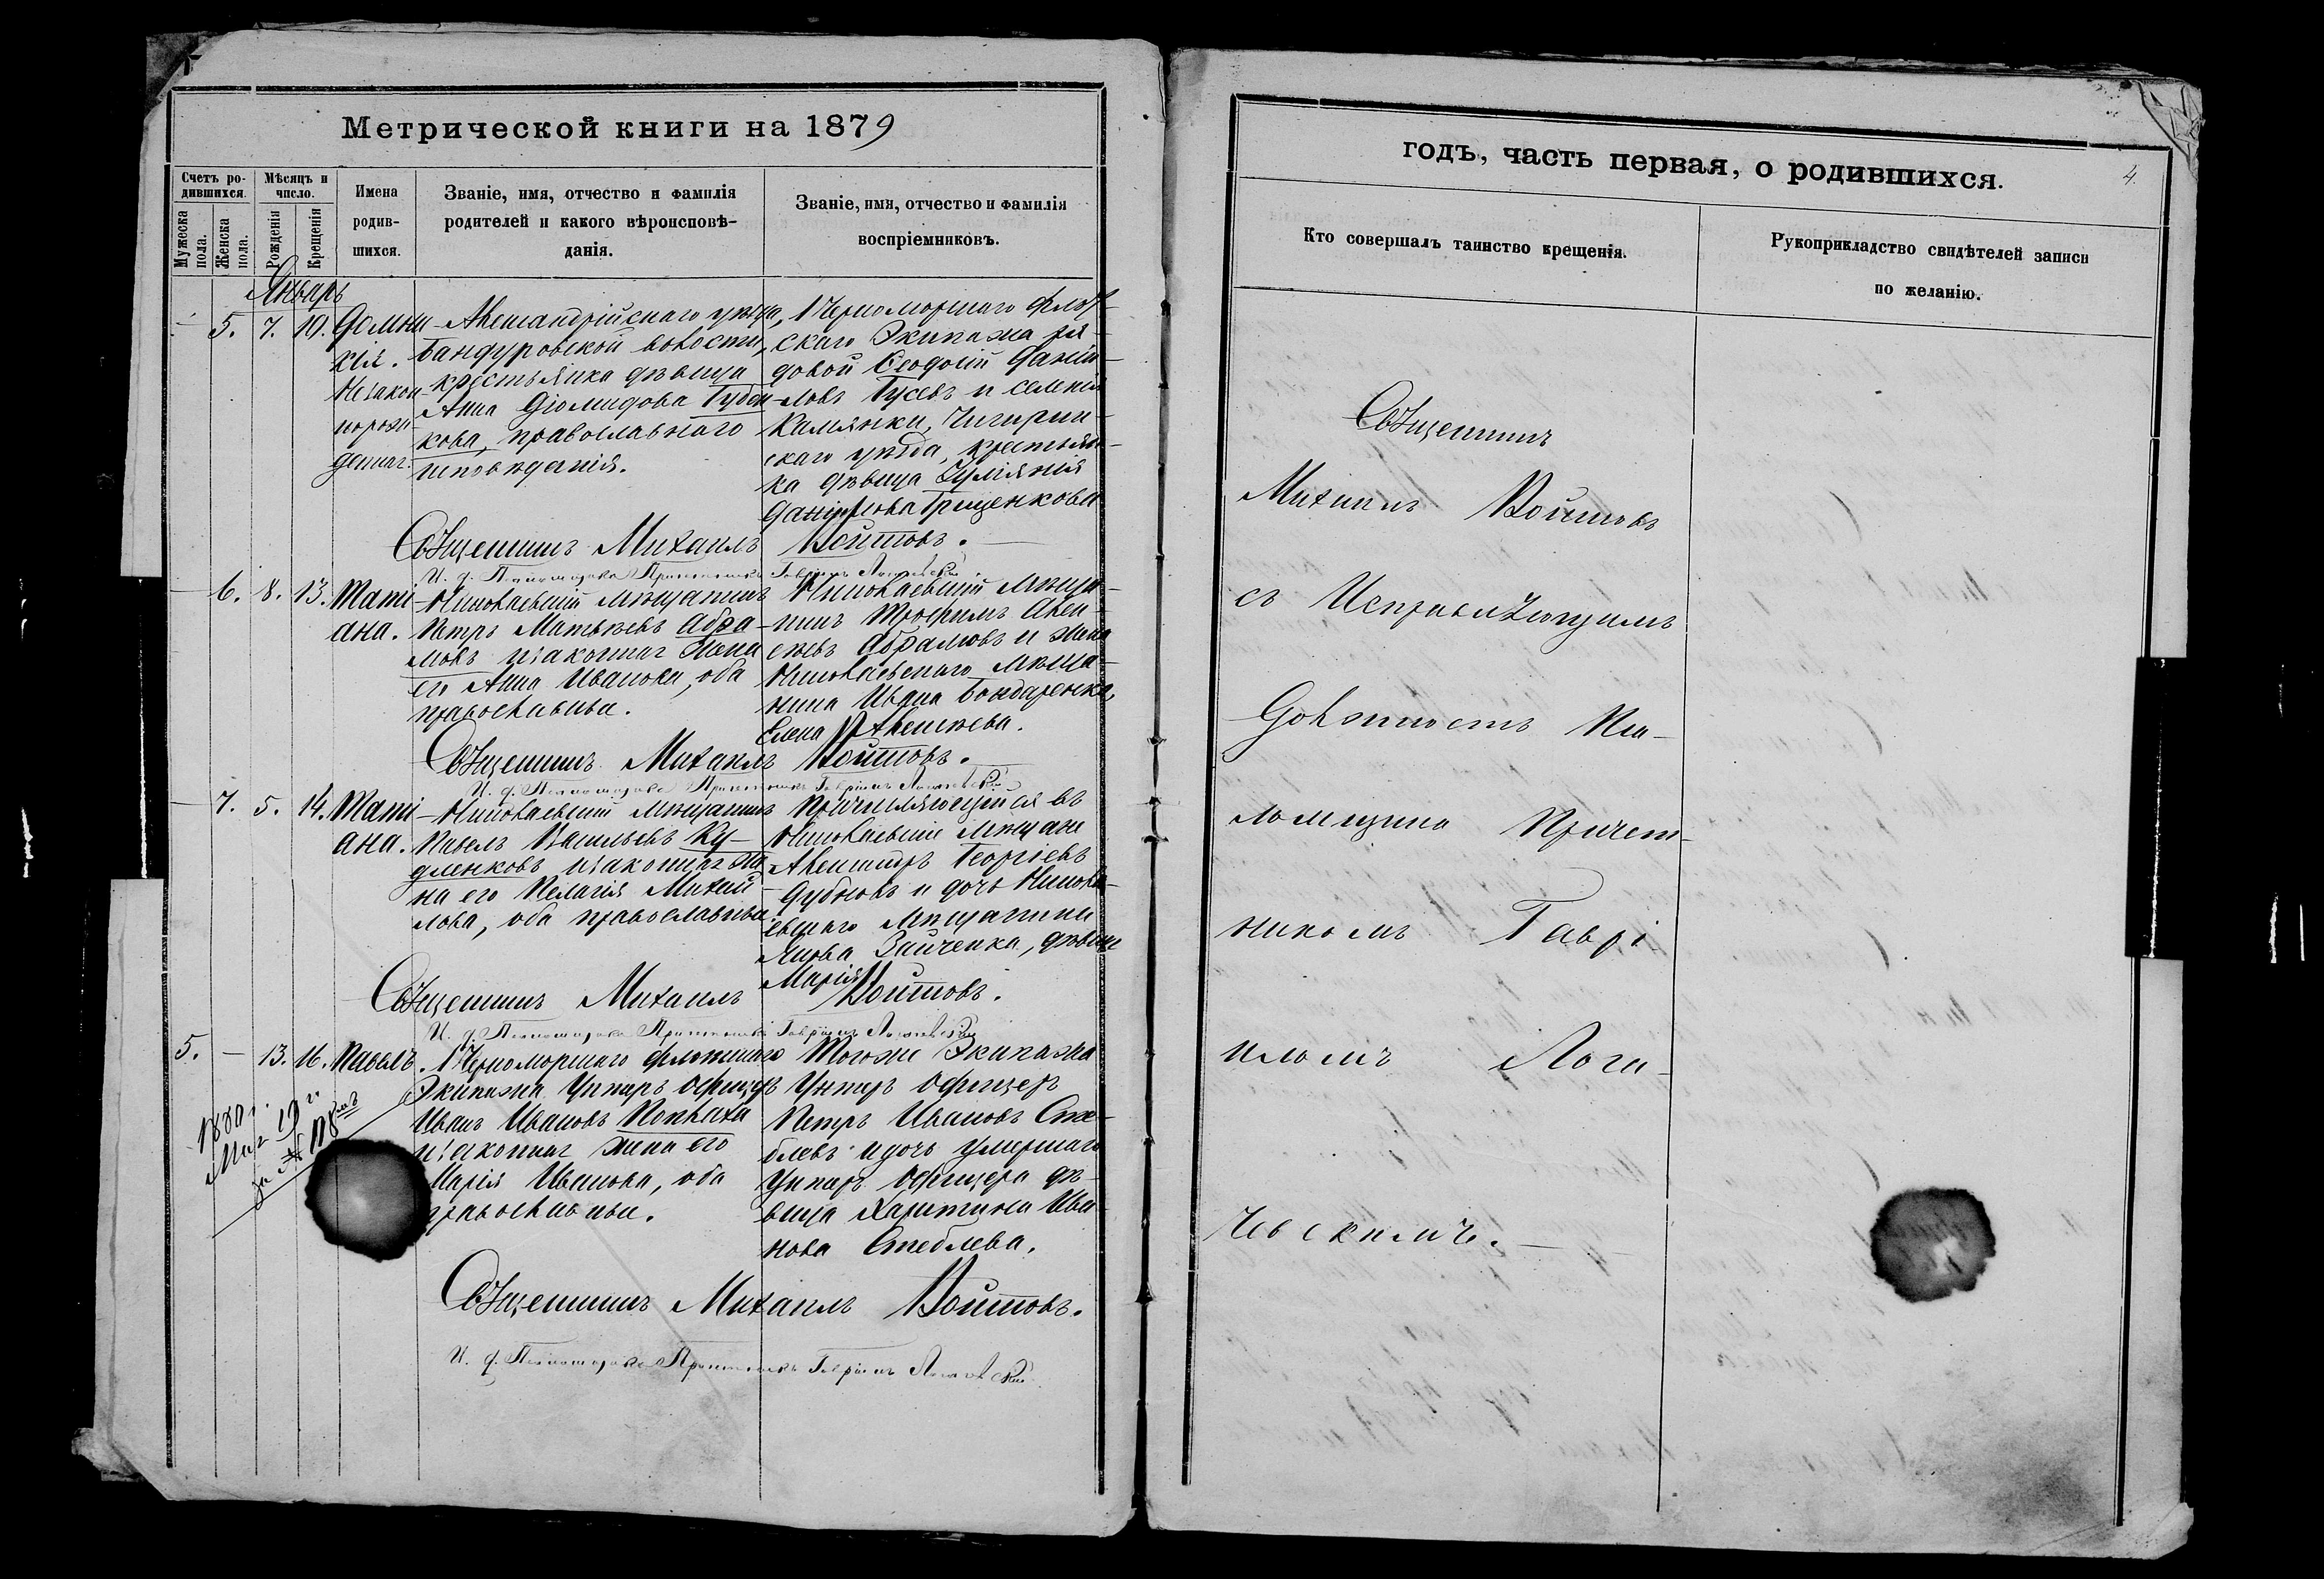 Метрической книги на 1879
Счетъ ро-
дившихся.
Мѣсяцъ и
число.
Мужеска
пола.
Женска
пола.
Рожденія
Крещенія
Имена
родив-
шихся.
Званіе, имя, отчество и фамилія
родителей и какого вѣроисповѣ-
данія.
Званіе, имя, отчество и фамилія
воспріемниковъ.
Январь
- 5. 7. 10.
Домни-
кія.
Незакон-
норож-
Александрійскаго уѣзда,
Бандуровской волости,
крестьянка дѣвица
Анна Діомидова Губен-
кова, православнаго
исповѣданія.
1 Черноморскаго флот-
скаго Экипажа ря-
довой Ѳеодосій Дані-
ловъ Гусевъ и селенія
Камянки, Чигирин-
скаго уѣзда, крестьян-
ка дѣвица Іуліянія
Даніилова Грищенкова
Священникъ Михаилъ Войтовъ.
И. д. Псаломщика Причетникъ Гавріилъ
- 6. 8. 13.
Таті-
ана.
Николаевскій мѣщанинъ
Петръ Матвѣевъ Абра-
мовъ и законная жена
его Анна Иванова, оба
православные.
Николаевскій мѣща-
нинъ Трофимъ Алек-
сѣевъ Абрамовъ и жена
Николаевскаго мѣща-
нина Ивана Бондаренка,
Елена Алексѣева.
Священникъ Михаилъ Войтовъ.
И. д. Псаломщика Причетникъ Гавріилъ
- 7. 5. 14.
Таті-
ана.
Николаевскій мѣщанинъ
Павелъ Васильевъ Ку-
дленковъ и законная же-
на его Пелагія Михай-
лова, оба православные.
Причисляющійся въ
Николаевскіе мѣщане
Александръ Георгіевъ
Дубковъ и дочь Никола-
евскаго мѣщанина
Якова Зайченка, дѣвица
Марія
Священникъ Михаилъ Войтовъ.
И. д. Псаломщика Причетникъ Гавріилъ
5. - 13. 16.
Павелъ.
1 Черноморскаго флотскаго
Экипажа Унтеръ Офицеръ
Иванъ Ивановъ Поплаха
и законная жена его
Марія Иванова, оба
православные.
Тогоже Экипажа
Унтеръ Офицеръ
Петръ Ивановъ Сте-
блевъ и дочь умершаго
Унтеръ Офицера дѣ-
вица Харитина Ива-
нова Стеблева.
1880 г.
Мая 19
за № 118
Священникъ Михаилъ Войтовъ.
И. д. Псаломщика Причетникъ Гавріилъ
годъ, часть первая, о родившихся.
4.
Кто совершалъ таинство крещенія.
Рукоприкладство свидѣтелей записи
по желанію.
Священникъ
Михаилъ Войтовъ
съ Исправляющимъ
Должность Пса-
ломщика Причет-
никомъ Гаврі-
иломъ Лога-
чевскимъ.